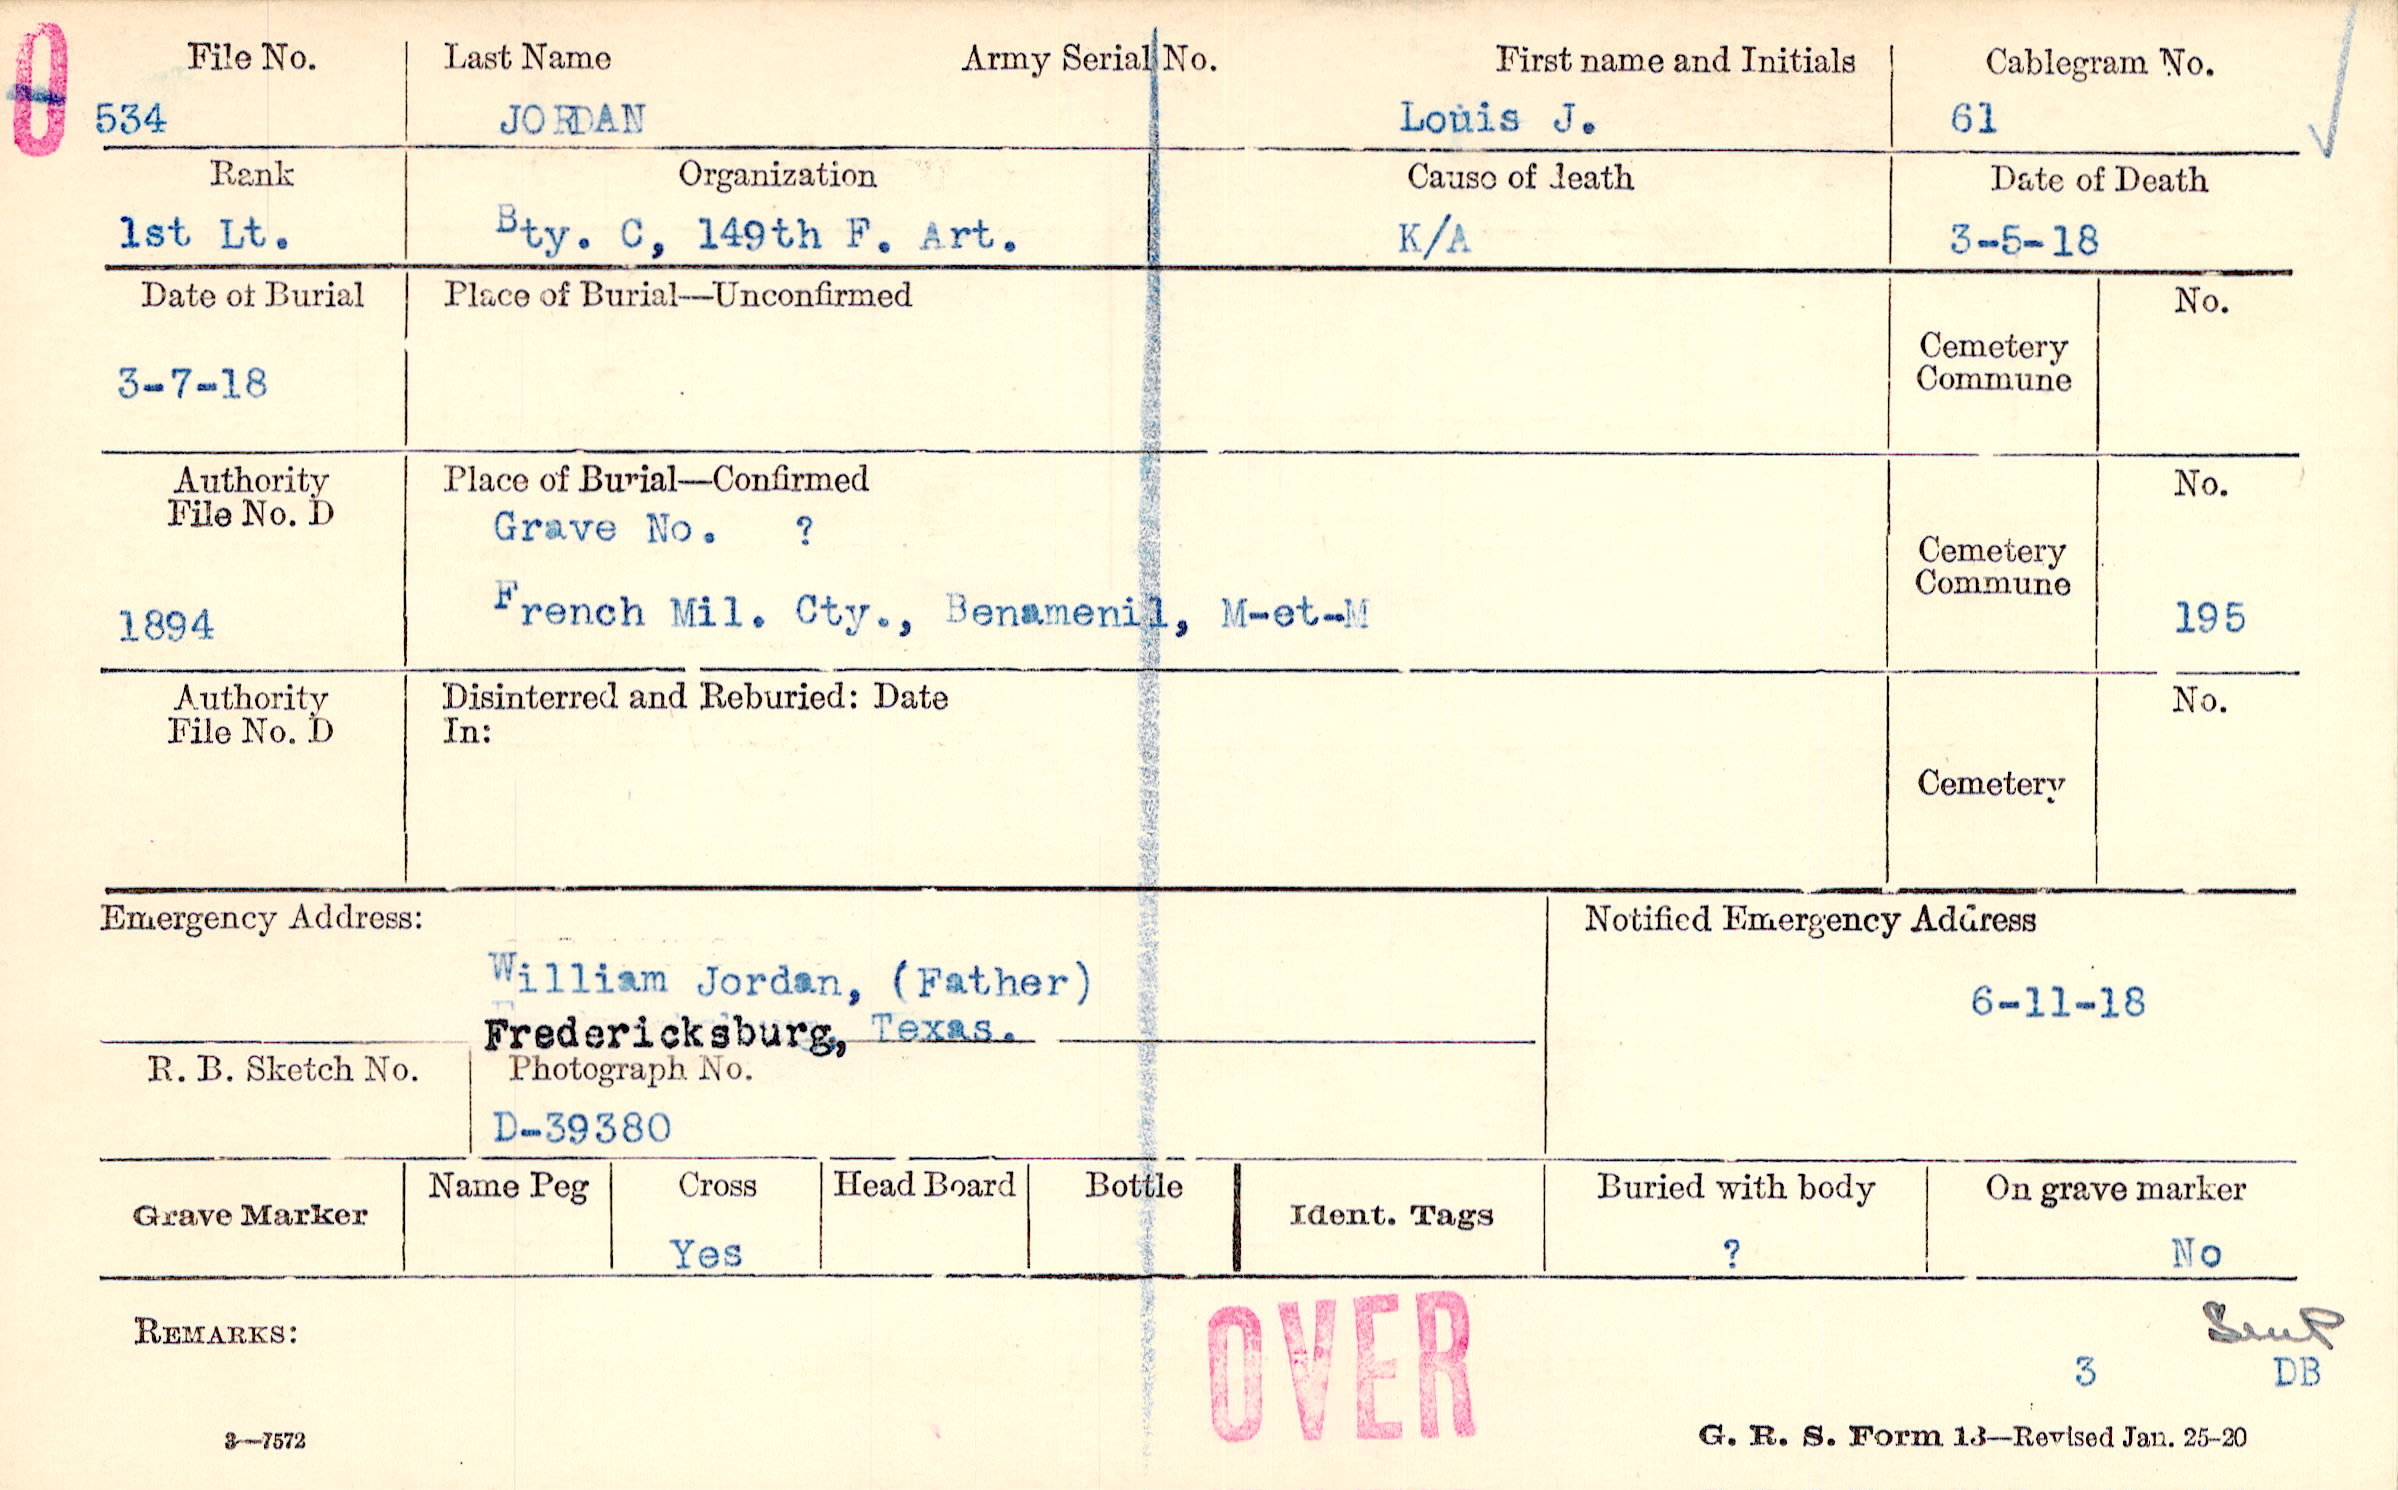 0
File No. Last Name Army Serial No. First name and Initials Cablegram No.
534 JORDAN Louis J. 61
Rank Organization Cause of death Date of Death
1st Lt. Bty. C, 149th F. Art. K/A 3-5-18
Date of Burial Place of Burial—Unconfirmed No.
Cemetery
Commune
3-7-18
Authority Place of Burial—Confirmed No.
File No. D
Grave No. ?
Cemetery
Commune
1894 French Mil. Cty., Benamenil, M-et-M 195
Authority Disinterred and Reburied: Date No.
File No. D In:
Cemetery
Emergency Address: Notified Emergency Address
William Jordan, (Father) 6-11-18
Fredericksburg, Texas.
R. B. Sketch No. Photograph No.
D-39380
Grave Marker Name Peg Cross Head Board Bottle Ident. Tags Buried with body On grave marker
Yes ? No
REMARKS: OVER
3 DB
3—7572 G. R. S. Form 13—Revised Jan. 25-20